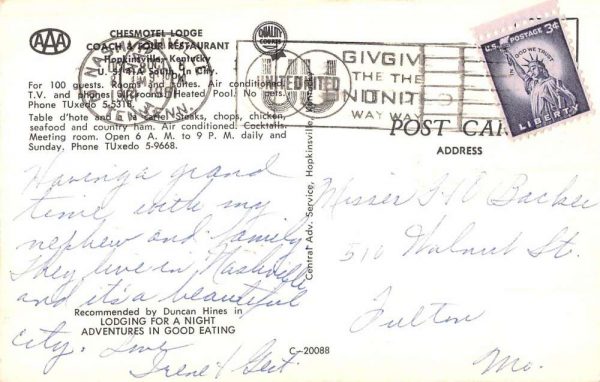 AAA
CHESMOTEL LODGE
COACH & FOUR RESTAURANT
Hopkinsville, Kentucky
U. S. 41A South, In City.
For 100 guests. Rooms and Suites. Air conditioned.
T.V. and phones all rooms. Heated Pool. No pets.
Phone TUxedo 5-5318.
Table d'hote and a la carte. Steaks, chops, chicken,
seafood and country ham. Air conditioned. Cocktails.
Meeting room. Open 6 A. M. to 9 P. M. daily and
Sunday. Phone TUxedo 5-9668.
Having a grand
time with my
nephew and family
They live in Nashville
and it's a beautiful
city. Love
Irene & Gert.
Recommended by Duncan Hines in
LODGING FOR A NIGHT
ADVENTURES IN GOOD EATING
C-20088
Central Adv. Service, Hopkinsville,
QUALITY COURTS
NASHVILLE
TENN.
UNITED
GIVGIV
THE THE
NONIT
WAY WAY
U.S. POSTAGE 3¢
IN GOD WE TRUST
LIBERTY
POST CAR
ADDRESS
Misses
510 Walnut St.
Fulton
Mo.